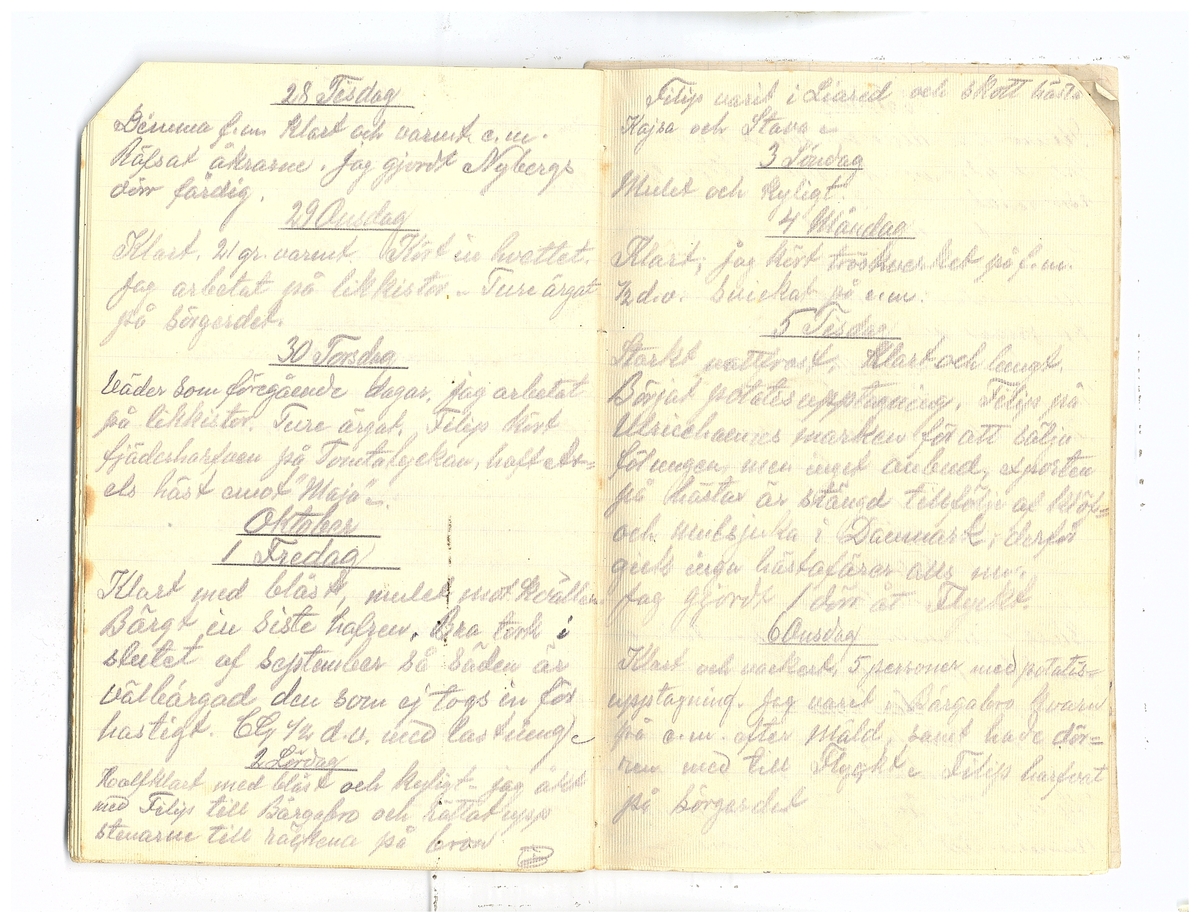 28 Tisdag
Dimma f.m. klart och varmt e.m.
Räfsat åkrarne. Jag gjordt Nybergs
dörr färdig.
29 Onsdag
Klart. 21 gr. varmt. Kört in hvettet.
Jag arbetat på likkistor. – Ture ärgat
på Börgerdet.
30 Torsdag
Väder som föregående dagar, jag arbetat
på likkistor. Ture ärgat. Filip kört
fjäderharfven på Tomtalyckan, haft Ax=
els häst emot "Maja".
Oktober
1 Fredag
Klart med blåst, mulet mot kvällen.
Bärgt in siste hafren. Bra tork i
slutet af September så säden är
välbärgad den som ej togs in för
hastigt. 1/2 d.v. med lastning
2 Lördag
Halfklart med blåst och kyligt – jag åkt
med Filip till Bärgabro och upp
stenarne till räckena på bron
Filip varit i Liared och skott hästa
Kajsa och Stava
3 Söndag
Mulet och kyligt.
4 Måndag
Klart, jag kört tröskverket på f.m.
1/2 d.v. snickat på e.m.
5 Tisdag
Starkt nattfrost. Klart och lugnt.
Börjat potatisupptagning. Filip på
Ulricehamns marken för att sälja
fölungen men inget anbud, exporten
på hästar är stängd tillfölje af klöf=
och mulsjuka i Danmark, derför
gick inga hästafärer alls nu.
Jag gjordt 1 dörr åt Flyckt.
6 Onsdag
Klart och vackert, 5 personer med potatis=
upptagning. Jag varit i Bärgabro Qvarn
på e.m. efter mäld, samt hade dör=
ren med till Flyckt. Filip harfvat
på Börgerdet